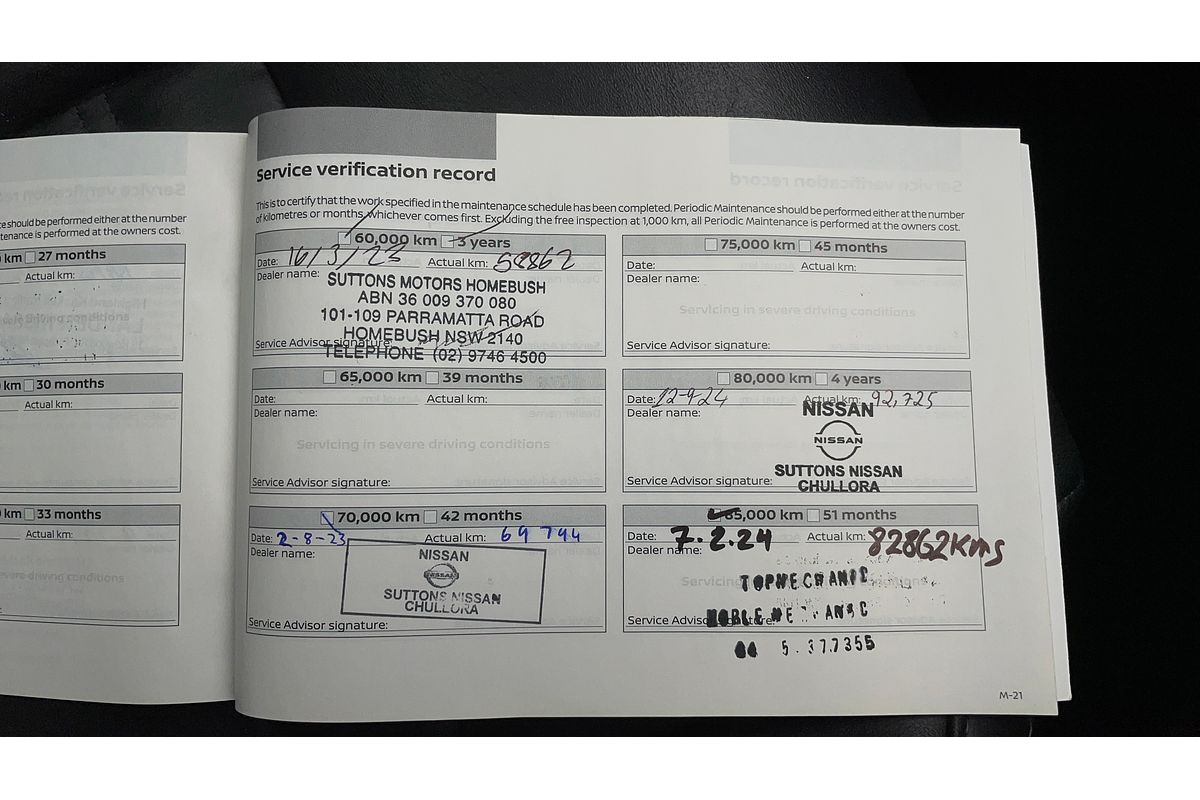 Service verification record
This is to certify that the work specified in the maintenance schedule has been completed. Periodic Maintenance should be performed either at the number
of kilometres or months, whichever comes first. Excluding the free inspection at 1,000 km, all Periodic Maintenance is performed at the owners cost.
ce should be performed either at the number
tenance is performed at the owners cost.
km 27 months
Actual km:
km 30 months
Actual km:
km 33 months
Actual km:
60,000 km 3 years
Date: 16/3/23 Actual km:
Dealer name:
SUTTONS MOTORS HOMEBUSH
ABN 36 009 370 080
101-109 PARRAMATTA ROAD
HOMEBUSH NSW 2140
Service Advisor signature:
TELEPHONE (02) 9746 4500
65,000 km 39 months
Date: Actual km:
Dealer name:
Servicing in severe driving conditions
Service Advisor signature:
70,000 km 42 months
Date: 2-8-23 Actual km: 69 794
Dealer name:
NISSAN
NISSAN
SUTTONS NISSAN
CHULLORA
Service Advisor signature:
75,000 km 45 months
Date: Actual km:
Dealer name:
Servicing in severe driving conditions
Service Advisor signature:
80,000 km 4 years
Date: 12-9-24 Actual km: 92,725
Dealer name:
NISSAN
NISSAN
SUTTONS NISSAN
CHULLORA
Service Advisor signature:
85,000 km 51 months
Date: 7.2.24 Actual km: 82862Kms
Dealer name:
Servicing
TOPMECHANIC
Service Advisor signature:
M-21